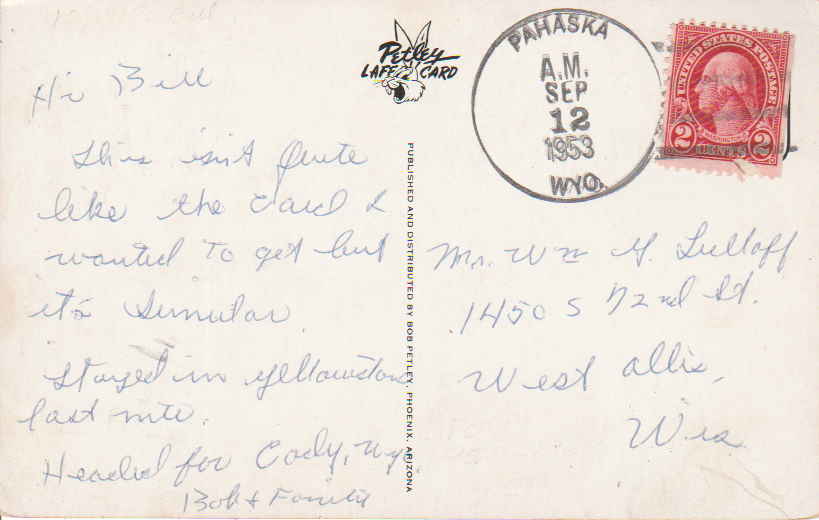 Hi Bill
This isn't quite
like the card I
wanted to get but
it's simular.
Stayed in Yellowstone
last nite.
Headed for Cody, Wyo.
Bob & Family
Petley
LAFF CARD
PUBLISHED AND DISTRIBUTED BY BOB PETLEY, PHOENIX, ARIZONA
PAHASKA
A.M.
SEP
12
1953
WYO.
UNITED STATES POSTAGE
WASHINGTON
2 CENTS 2
Mr. Wm G.
1450 S 72nd St.
West Allis,
Wis